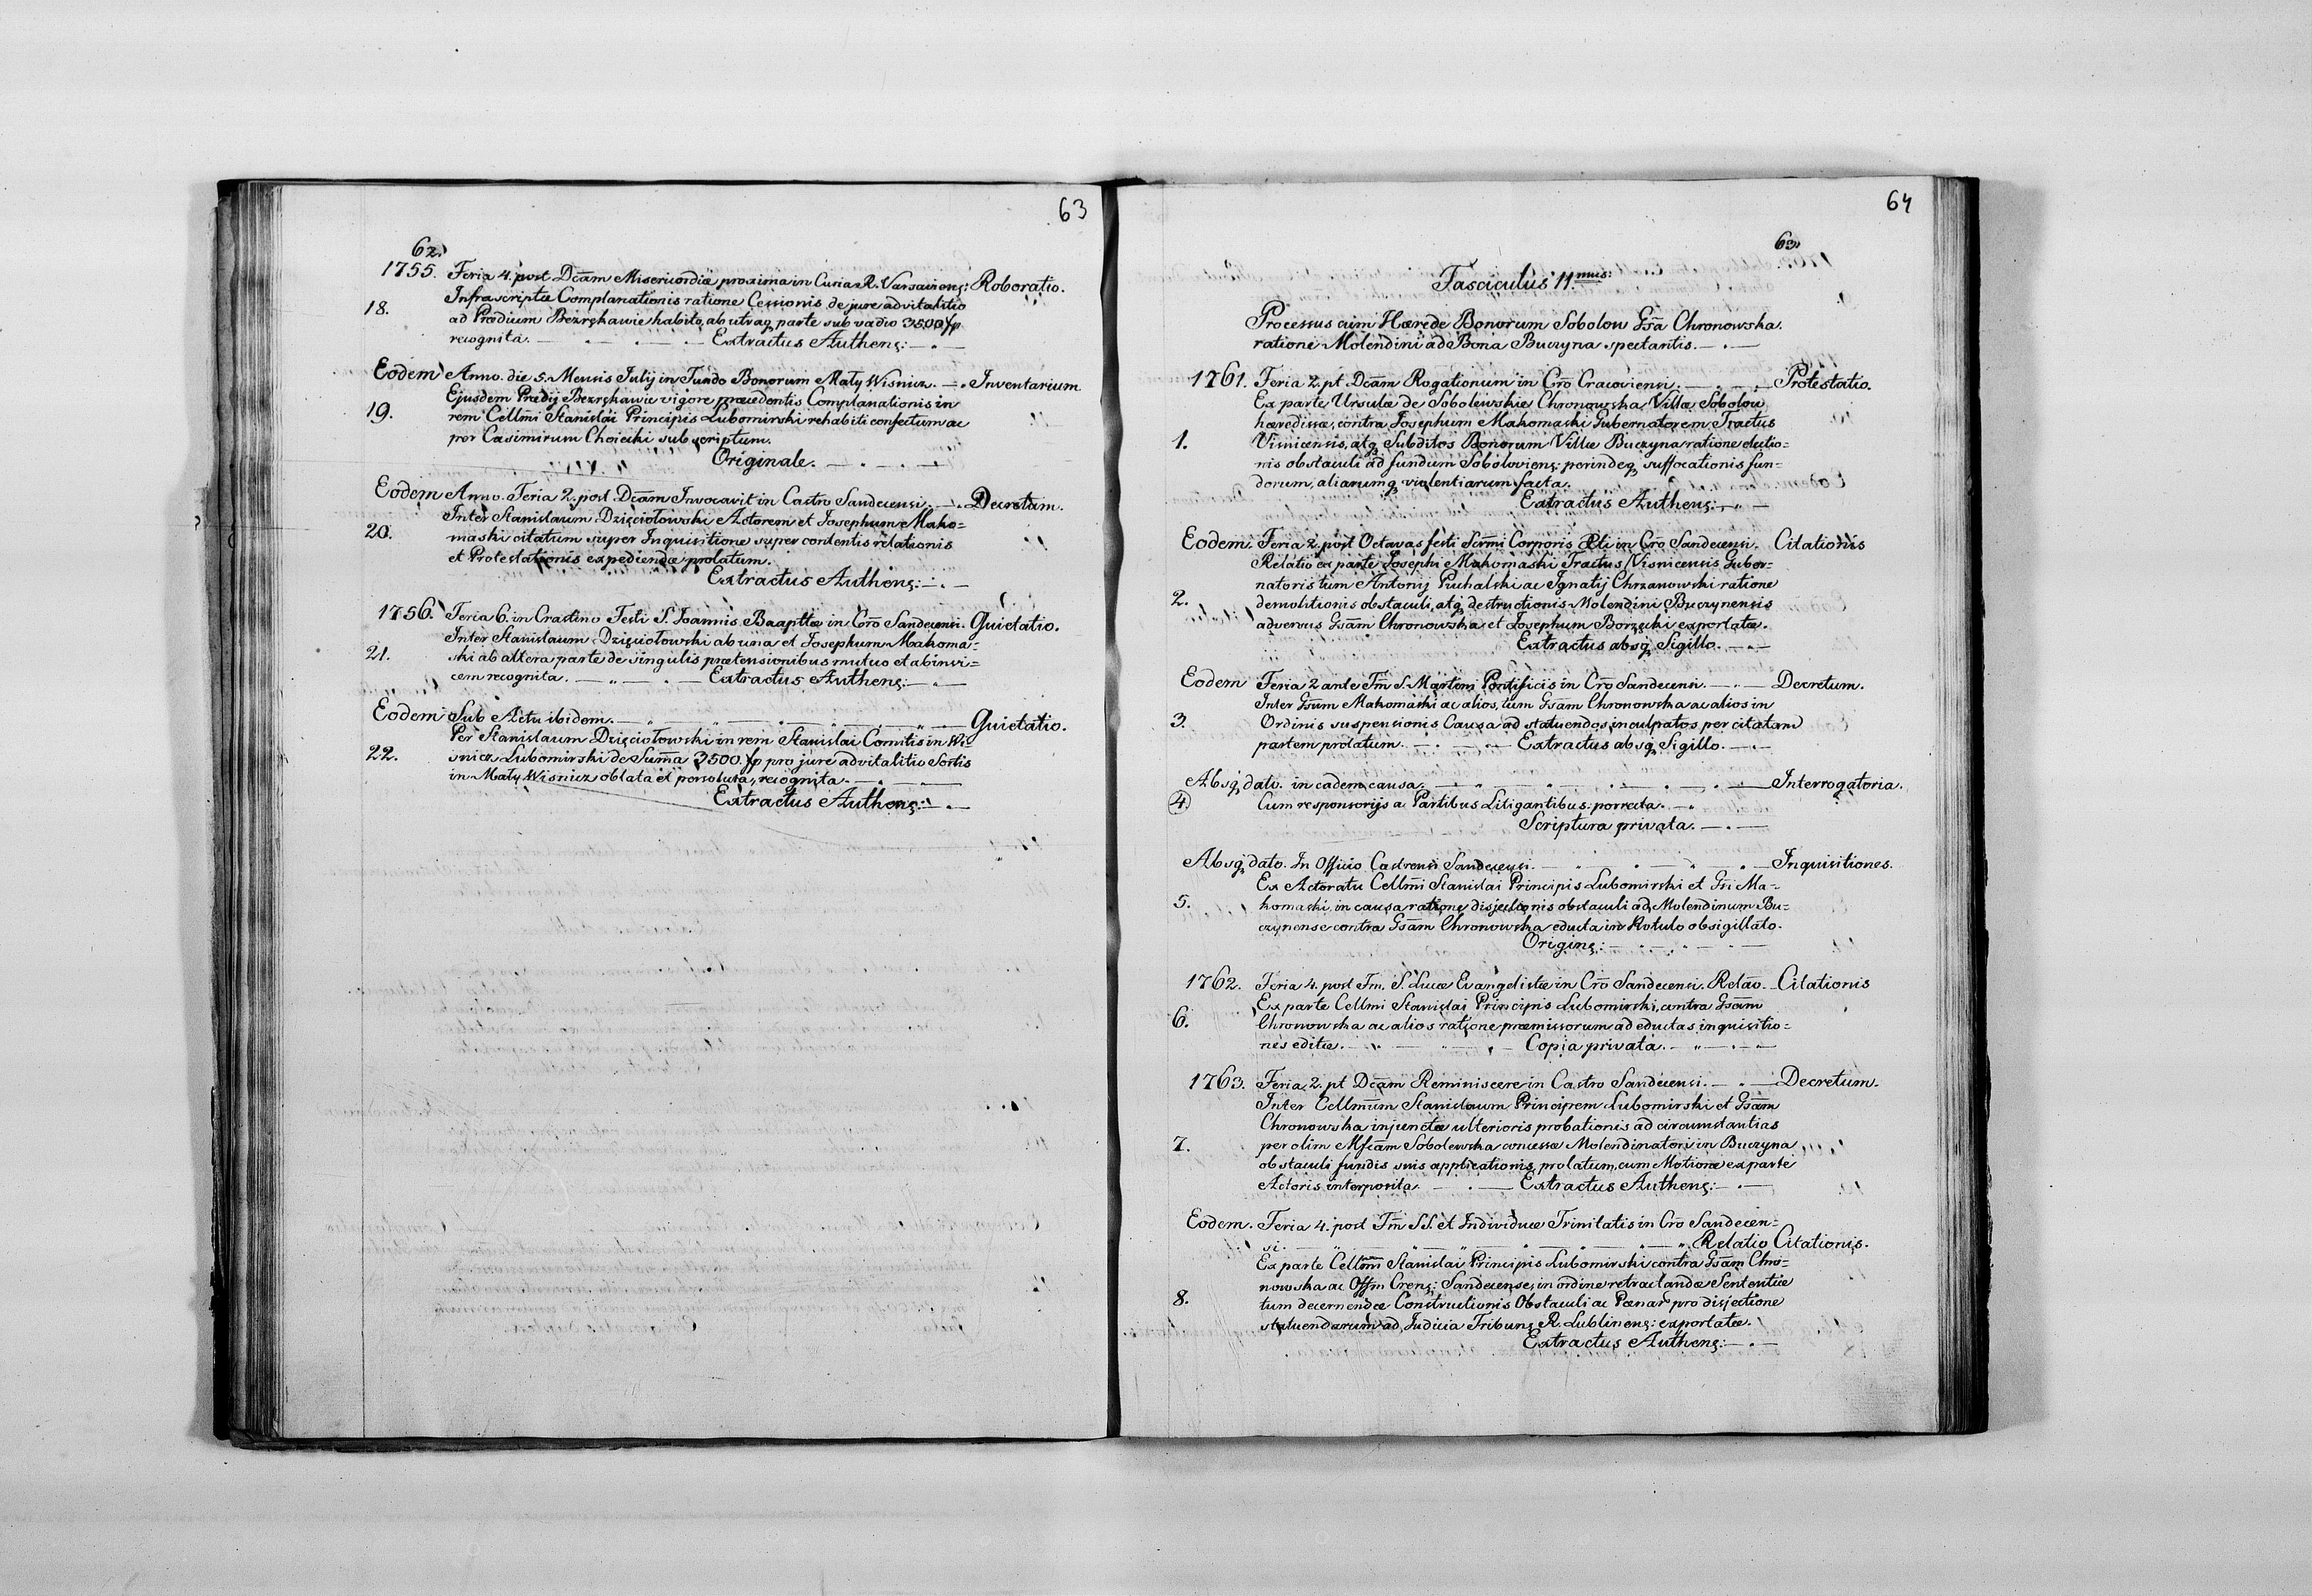 63
62.
1755. Feria 4. post Dcam Misericordiæ proxima in Curia R. Varsaviens: Roboratio.
Infrascriptæ Complanationis ratione Cessionis de jure advitalitio
18. ad Prædium Bezrękawie habito, ab utraq parte sub vadio 3500 fp
recognita. — Extractus Authens: —
Eodem Anno. die 5. Mensis Julij in Fundo Bonorum Mały Wisnicz. — Inventarium
Ejusdem Prædij Bezrękawie vigore præcedentis Complanationis in
19. rem Cellmi Stanislai Principis Lubomirski rehabiti confectum ac
per Casimirum Choiecki subscriptum.
Originale. —
Eodem Anno. Feria 2. post Dcam Invocavit in Castro Sandecensi. — Decretum.
Inter Stanislaum Dzięciołowski Actorem et Josephum Mako=
20. maski citatum super Inquisitione super contentis relationis
et Protestationis expedienda prolatum.
Extractus Authens: —
1756. Feria 6. in Crastino Festi S. Joannis Baaptta in Cro Sandecensi. Quietatio.
Inter Stanislaum Dzięciołowski ab una et Josephum Makoma=
21. ski ab altera parte de singulis prætensionibus mutuo et abinvi=
cem recognita. — Extractus Authens: —
Eodem Sub Actu ibidem. — Quietatio.
Per Stanislaum Dzięciołowski in rem Stanislai Comitis in Wi=
22. snicz Lubomirski de Suma 3500. fp pro jure advitalitio Sortis
in Mały Wisnicz oblata et persoluta, recognita. —
Extractus Authens: —
64
63.
Fasciculus 11.mus:
Processus cum Hærede Bonorum Sobolow Gsa Chronowska.
ratione Molendini ad Bona Buczyna spectantis. —
1761. Feria 2. pt Dcam Rogationum in Cro Cracoviensi. — Protestatio.
Ex parte Ursulæ de Sobolewskie Chronowska, Villa Sobolow
hæredissæ, contra Josephum Makomaski Gubernatorem Tractus
1. Visnicensis, atq Subditos Bonorum Villæ Buczyna ratione
nis obstaculi ad fundum Soboloviens: perindeq suffocationis fun=
dorum, aliarumq violentiarum facta.
Extractus Authens: —
Eodem. Feria 2. post Octavas festi Scrmi Corporis Xti in Cro Sandecensi. Citationis
Relatio ex parte Josephi Makomaski Tractus Visnicensis Guber=
natoris tum Antonij Puchalski ac Ignatij Chrzanowski ratione
2. demolitionis obstaculi, atq destructionis Molendini Buczynensis
adversus Gsam Chronowska et Josephum Borzęcki exportatæ.
Extractus absq Sigillo. —
Eodem Feria 2 ante Fm S. Martini Pontificis in Cro Sandecensi. — Decretum.
Inter Gsum Makomaski ac alios, tum Gsam Chronowska ac alios in
3. Ordinis suspensionis Causa ad statuendos inculpatos per citatam
partem prolatum. — Extractus absq Sigillo. —
Absq dato. in eadem causa. — Interrogatoria.
4. Cum responsorijs a Partibus Litigantibus porrecta. —
Scriptura privata. —
Absq dato. In Officio Castrensi Sandecensi. — Inquisitiones.
Ex Actoratu Cellmi Stanislai Principis Lubomirski et Gsi Ma=
5. komaski, in causa ratione disjectionis obstaculi ad Molendinum Bu=
czynense contra Gsam Chronowska educta in Rotulo obsigillato.
Origins: —
1762. Feria 4. post Fm. S. Lucæ Evangelistæ in Cro Sandecensi. Relao. Citationis
Ex parte Cellmi Stanislai Principis Lubomirski, contra Gsam
6. Chronowska ac alios ratione præmissorum ad eductas inquisitio=
nes editæ. — Copia privata. —
1763. Feria 2. pt Dcam Reminiscere in Castro Sandecensi. — Decretum.
Inter Cellmum Stanislaum Principem Lubomirski et Gsam
Chronowska injunctæ ulterioris probationis ad circumstantias
7. per olim Mfcam Sobolewska concessæ Molendinatori in Buczyna
obstaculi fundis suis applicationis, prolatum, cum Motione ex parte
Actoris interposita. — Extractus Authens: —
Eodem. Feria 4. post Fm SS. et Individuæ Trinitatis in Cro Sandecen=
si. — Relatio Citationis.
Ex parte Cellmi Stanislai Principis Lubomirski contra Gsam Chro=
nowska ac Offm Crens: Sandecense, in ordine retractandæ Sententiæ
8. tum decernendæ Constructionis Obstaculi ac Pænar pro disjectione
statuendarum ad Judicia Tribuns R. Lublinens: exportatæ.
Extractus Authens: —